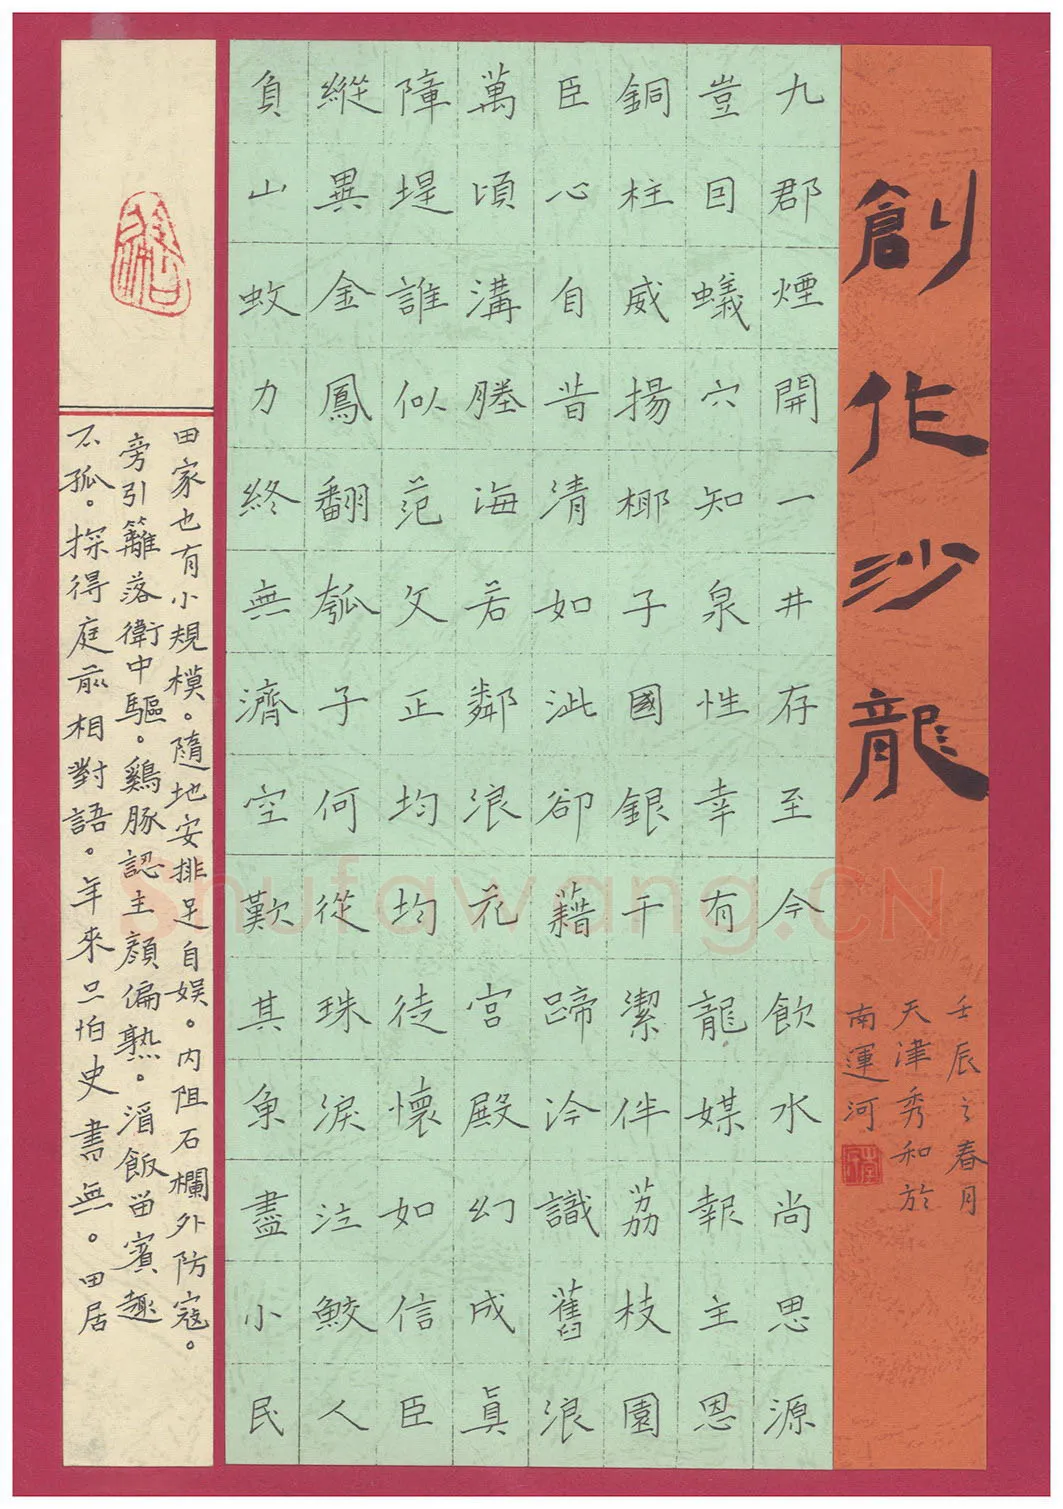 創作沙龍
壬辰之春月
天津秀和於
南運河
九郡煙開一井存至今飲水尚思源
豈因蟻穴知泉性幸有龍媒報主恩
銅柱威揚椰子國銀干潔伴荔枝園
臣心自昔清如泚卻藉蹄泠識舊浪
萬頃溝塍海若鄰浪花宮殿幻成真
障堤誰似范文正均均徒懷如信臣
縱異金鳳翻瓠子何從珠淚泣鮫人
負山蚊力終無濟空歎其魚盡小民
田家也有小規模。隨地安排足自娛。內阻石欄外防寇。
旁引籬落衛中驅。鷄豚認主顏偏熟。酒飯留賓趣
不孤。探得庭前相對語。年來只怕史書無。田居
Shufawang.CN